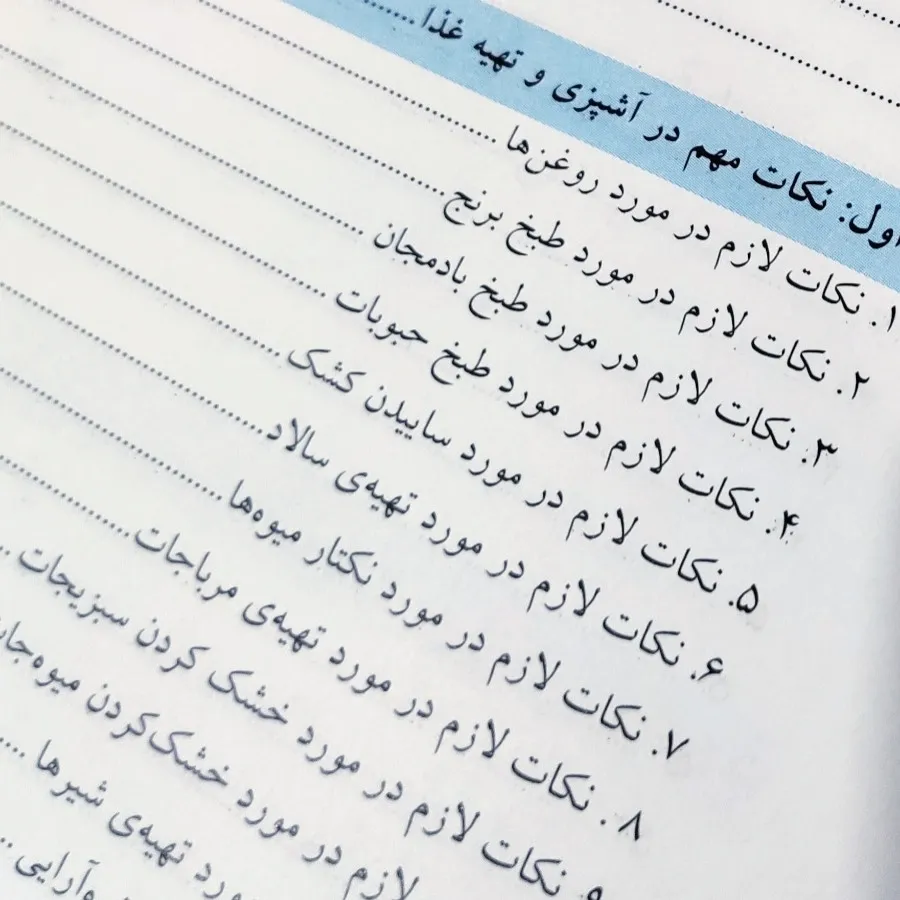 اول: نکات مهم در آشپزی و تهیه غذا
۱. نکات لازم در مورد روغن‌ها
۲. نکات لازم در مورد طبخ برنج
۳. نکات لازم در مورد طبخ بادمجان
۴. نکات لازم در مورد طبخ حبوبات
۵. نکات لازم در مورد ساییدن کشک
۶. نکات لازم در مورد تهیه‌ی سالاد
۷. نکات لازم در مورد نکتار میوه‌ها
۸. نکات لازم در مورد تهیه‌ی مرباجات
۹. نکات لازم در مورد خشک کردن سبزیجات
لازم در مورد خشک‌کردن
تهیه‌ی شیرها